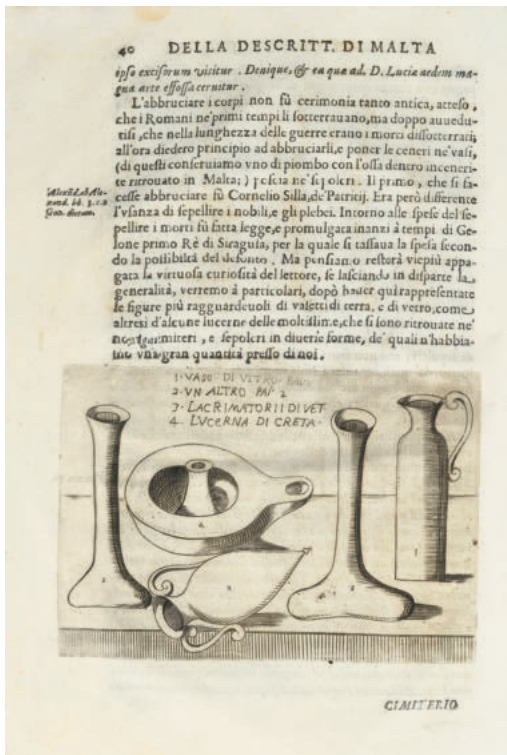 40 DELLA DESCRITT. DI MALTA
ipso excisorum visitur. Denique, & ea quæ ad. D. Luciæ aedem ma-
gna arte effossa cernitur.
L'abbruciare i corpi non fù cerimonia tanto antica, atteso,
che i Romani ne' primi tempi li sotterrauano, ma doppo auuedu-
tisi, che nella lunghezza delle guerre erano i morti dissotterrati;
all'ora diedero principio ad abbruciarli, e poner le ceneri ne' vasi,
(di questi conseruiamo vno di piombo con l'ossa dentro inceneri-
te ritrouato in Malta;) poscia ne' sepolcri. Il primo, che si fa-
Alex. ab Ale-
xand. lib. 3. c. 2
Gen. dierum.
cesse abbruciare fù Cornelio Silla, de' Patricij. Era però differente
l'vsanza di sepellire i nobili, e gli plebei. Intorno alle spese del se-
pellire i morti fù fatta legge, e promulgata inanzi à tempi di Ge-
lone primo Rè di Siragusa, per la quale si tassaua la spesa secon-
do la possibiltà del defonto. Ma pensiamo resterà viepiù appa-
gata la virtuosa curiosità del lettore, se lasciando in disparte la
generalità, verremo à particolari, dopò hauer qui rappresentate
le figure più ragguardeuoli di vasetti di terra, e di vetro, come
altresì d'alcune lucerne delle moltissime, che si sono ritrouate ne'
nostri cimiteri, e sepolcri in diuerse forme, de' quali n'habbia-
mo vna gran quantità presso di noi.
1· VASO DI VETRO
2· VN ALTRO
3· LACRIMATORII DI VET
4· LVCERNA DI CRETA·
4
3
2
3
1
CIMITERIO